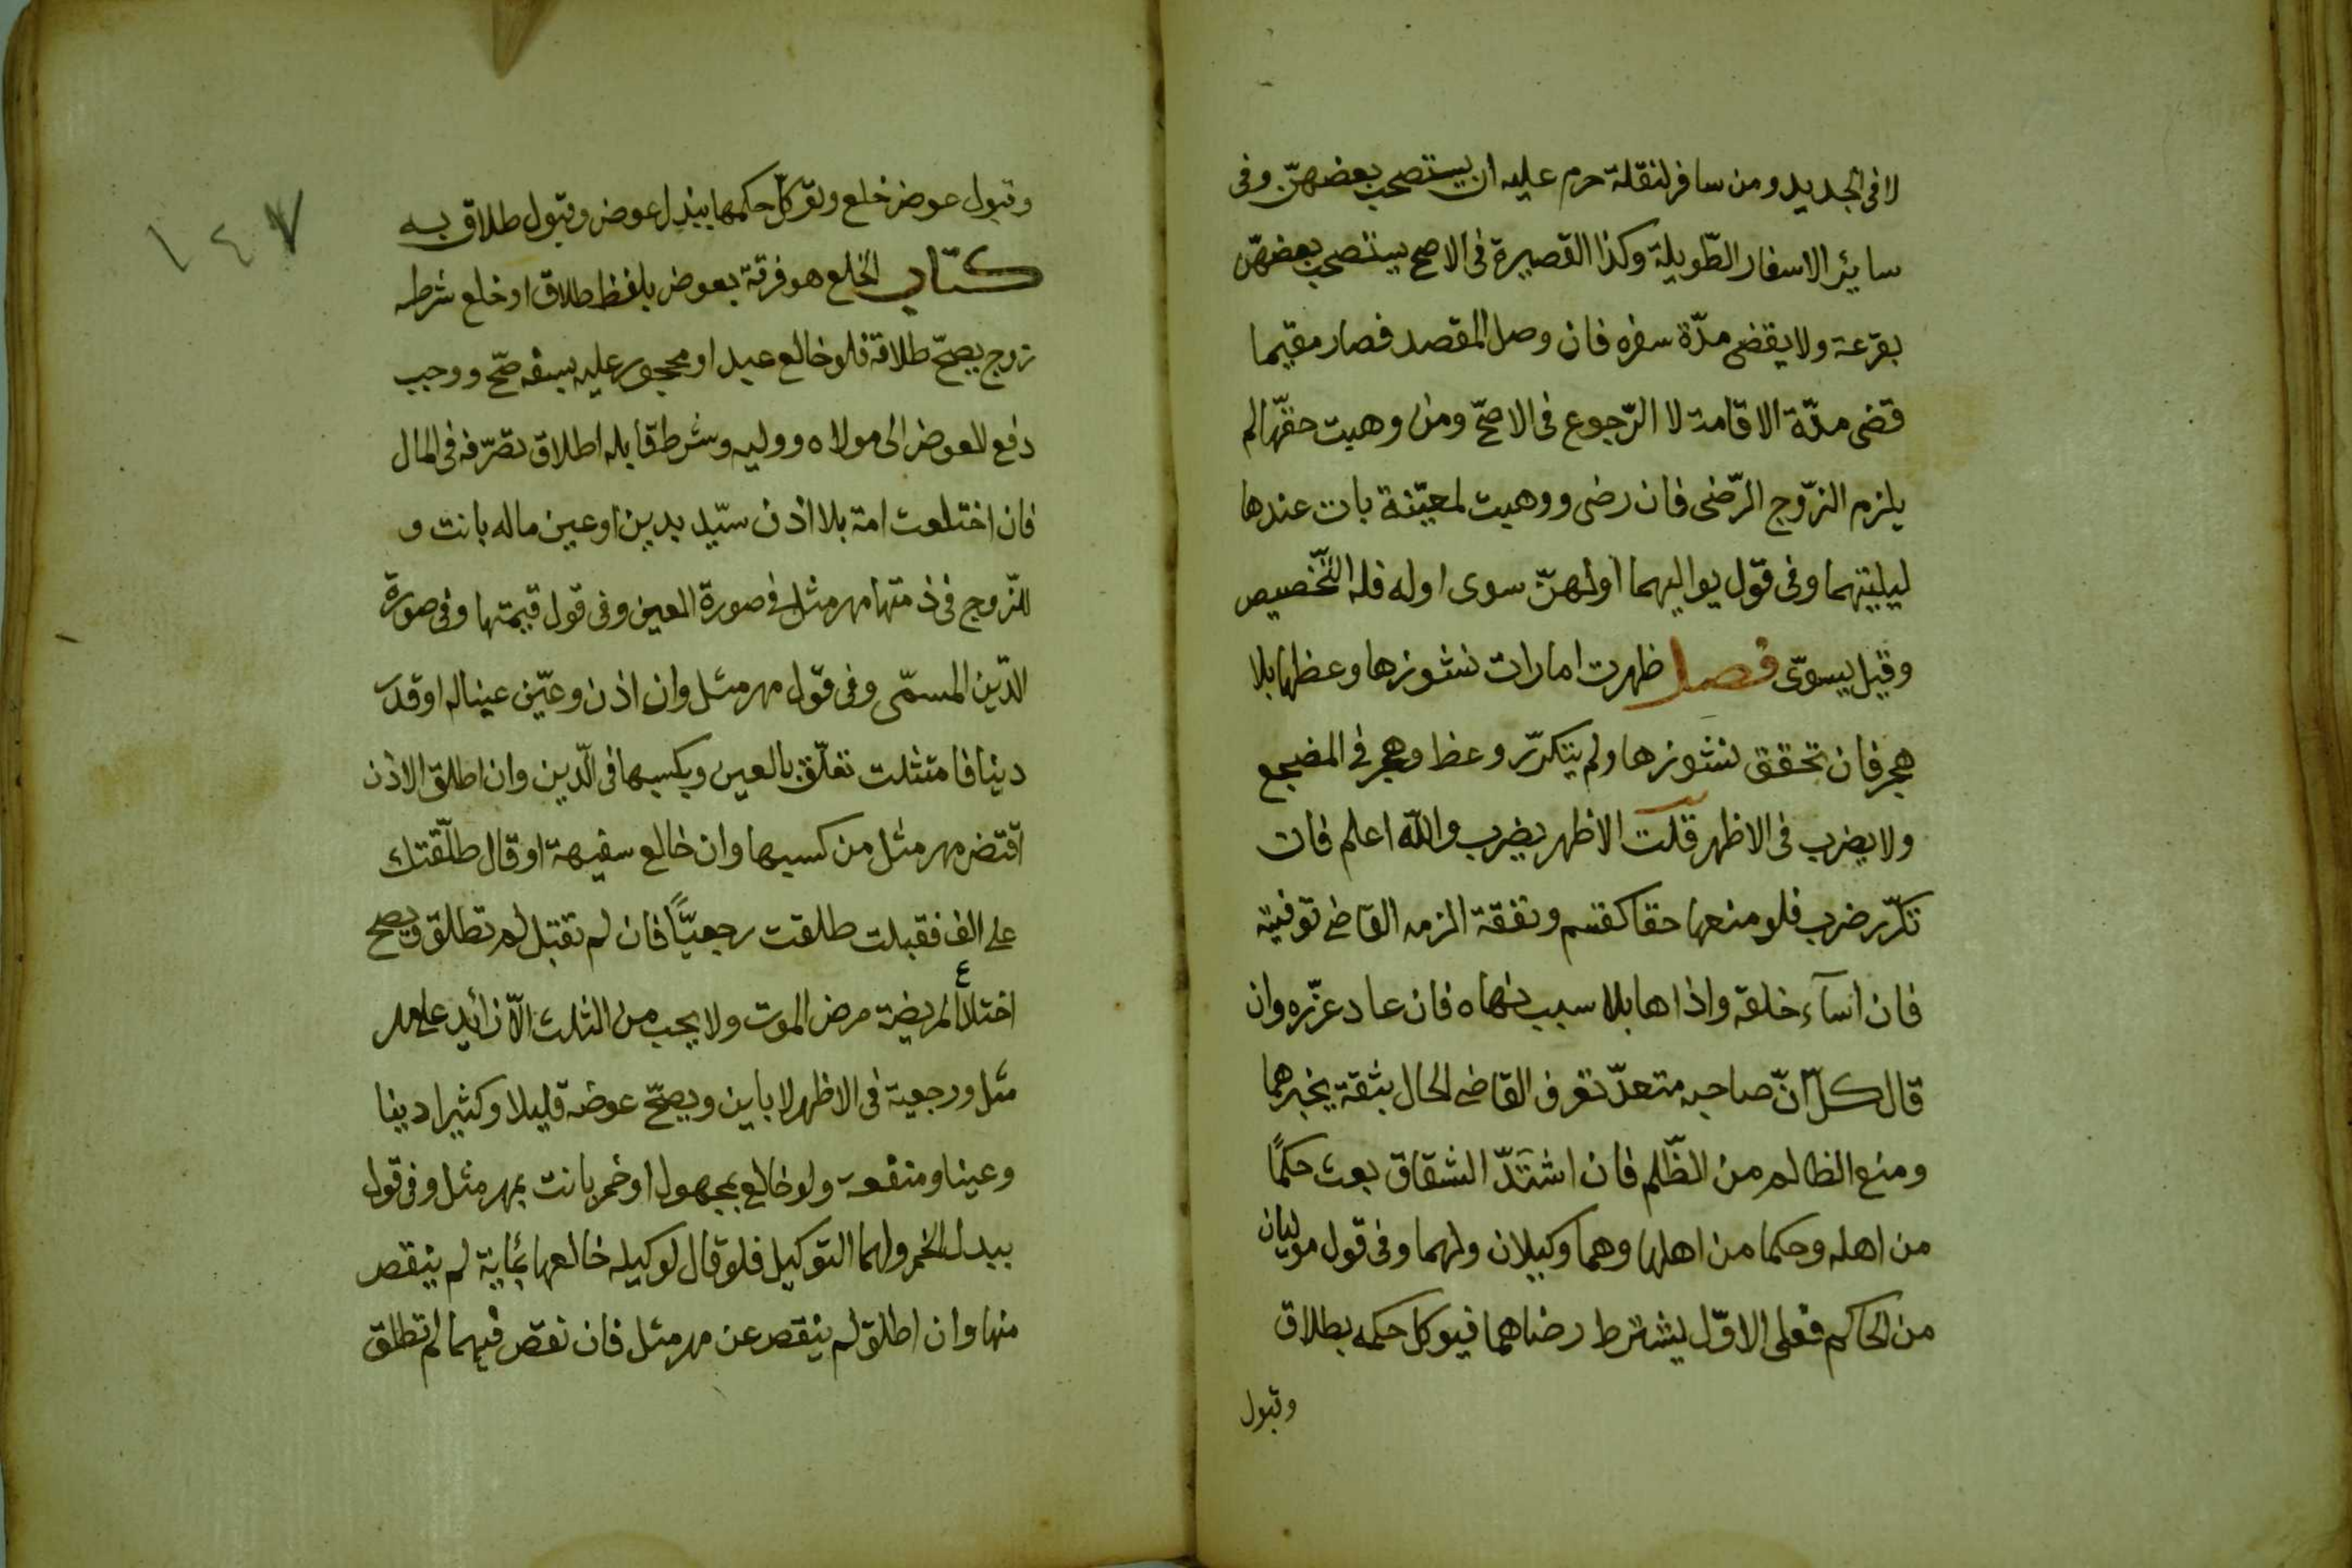 لا فى الجديد ومن سافر لنقلة حرم عليه ان يستصحب بعضهنّ وفى
سايئر الاسفار الطّويلة وكذا القصيرة فى الاصح يستصحب بعضهنّ
بقرعة ولا يقضى مدّة سفره فان وصل المقصد فصار مقيما
قضى مدّة الاقامة لا الرّجوع فى الاصحّ ومن وهبت حقّها لم
يلزم الزّوج الرّضى فان رضى ووهبت لمعيّنة بات عندها
ليليتهما وفى قوّل يواليهما اولهنّ سوى اوله فله التّخصيص
وقيل يسوّى فصل ظهرت امارات نشوزها وعظها بلا
هجر فان تحقق نشوزها ولم يتكرّر وعظ وهجر فى المضجع
ولا يضرب فى الاظهر قلت الاظهر يضرب والله اعلم فان
تكرّر ضرب فلو منعها حقا كقسم ونفقة الزمه القاضى توفيته
فان اسآء خلقه واذاها بلا سبب نهاه فان عاد عزّره وان
قال كلّ انّ صاحبه متعدّ تعرف القاضى الحال بثقة يخبرهما
ومنع الظالم من الظّلم فان اشتدّ الشقاق بعث حكمًا
من اهله وحكما من اهلها وهما وكيلان ولهما وفى قول موليان
من الحاكم فعلى الاوّل يشترط رضاهما فيوكل حكمه بطلاق
وقبول
١٤٧
وقبول عوض خلع وتوكّل حكمها ببذل عوض وقبول طلاق به
كتاب الخلع هو فرقة بعوض بلفظ طلاق او خلع شرطه
زوج يصحّ طلاقه فلو خالع عبد او محجور عليه بسفه صحّ ووجب
دفع العوض الى مولاه ووليه وشرط قابله اطلاق تصرّفه فى المال
فان اختلعت امة بلا اذن سيّد بدين او عين ماله بانت و
للزّوج فى ذمتها مهر مثل فى صورة العين وفى قول قيمتها وفى صورة
الدّين المسمّى وفى قوّل مهر مثل وان اذن وعيّن عينا له او قدّر
دينا فامتثلت تعلّق بالعين وبكسبها فى الدّين وان اطلق الاذن
اقتضى مهر مثل من كسبها وان خالع سفيهة او قال طلّقتك
على الف فقبلت طلقت رجعيًّا فان لم تقبل لم تطلق ويصح
اختلاع المريضة مرض الموت ولا يحب من الثلث الّا زائد على مهر
مثل ورجعية فى الاظهر لا باين ويصحّ عوضه قليلا وكثيرا دينا
وعينا ومنفعة ولو خالع بمجهول او خمر بانت بمهر مثل وفى قول
ببدل الخمر ولهما التوكيل فلو قال لوكيله خالعها بمائة لم ينقص
منها وان اطلق لم ينقص عن مهر مثل فان نقص فيهما لم تطلق